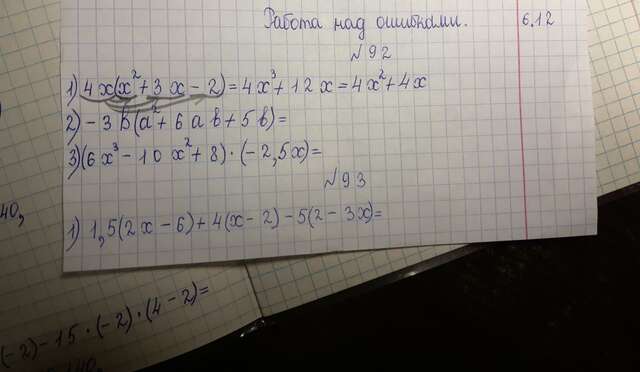 Работа над ошибками. 6.12
№92
1) 4x(x²+3x-2)=4x³+12x=4x²+4x
2)-3b(a²+6ab+5b)=
3)(6x³-10x²+8)·(-2,5x)=
№93
1) 1,5(2x-6)+4(x-2)-5(2-3x)=
40,
(-2)-15·(-2)·(4-2)=